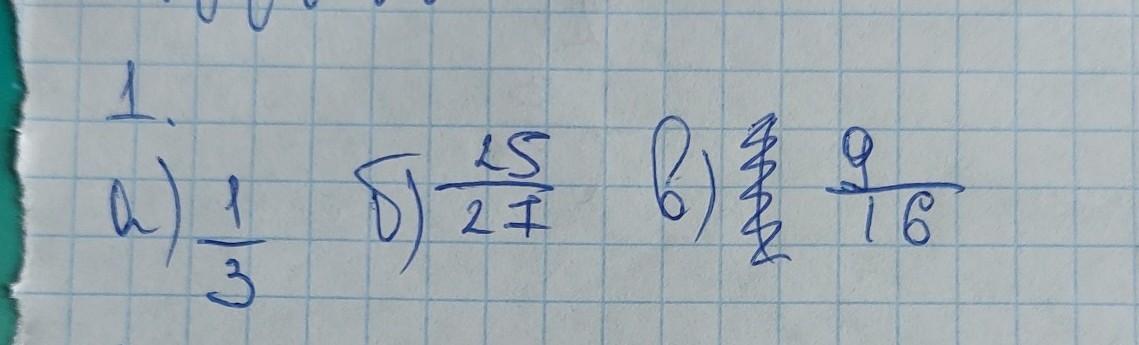 1.
а) 1/3 б) 25/27 в) 9/16